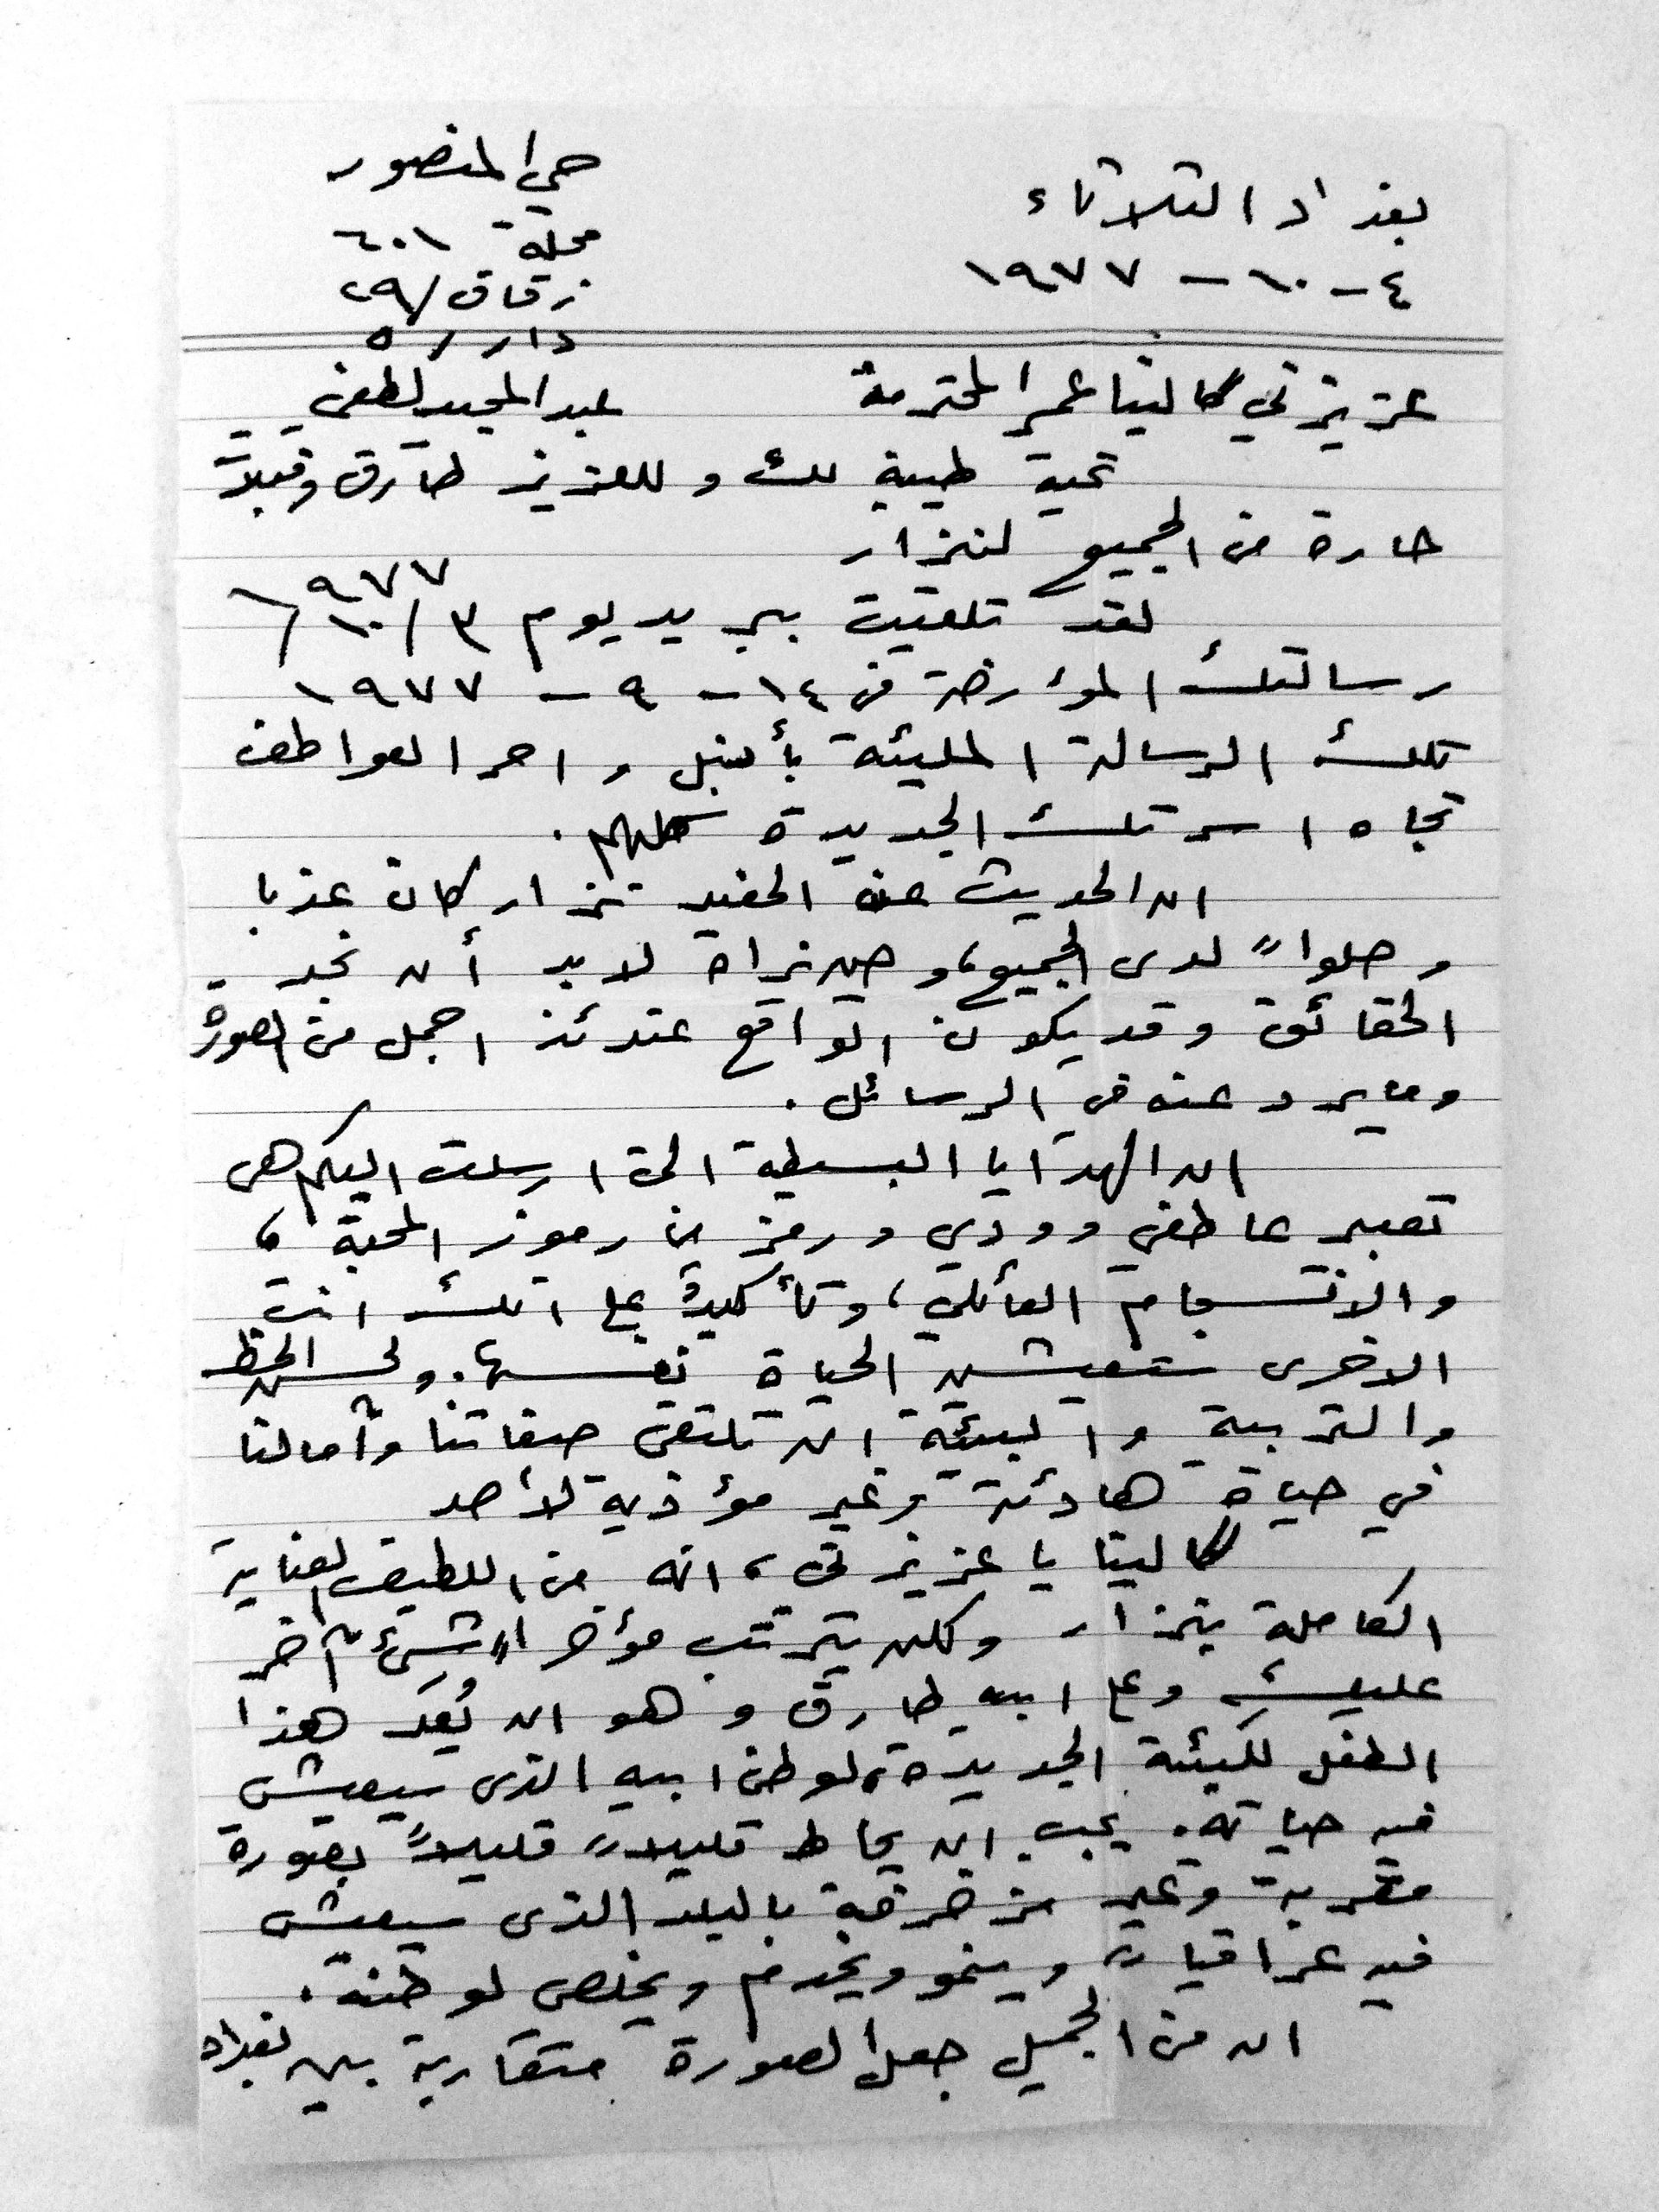 بغداد الثلاثاء
٤ - ١٠ - ١٩٧٧
حي المنصور
محلة ٦٠١
زقاق/٢٩
دار/٥
عبد المجيد لطفي
عزيزتي كالينا عمر المحترمة
تحية طيبة لك و للعزيز طارق وقبلات
حارة من الجميع لنزار
لقد تلقيت ببريد يوم ٣/١٠/١٩٧٧
رسالتك المؤرخة في ١٤ - ٩ - ١٩٧٧
تلك الرسالة المليئة بأنبل واحر العواطف
تجاه اسرتك الجديدة كلهم.
ان الحديث عن الحفيد نزار كان عذبا
وحلواً لدى الجميع، وحين نراه لابد أن نجد
الحقائق وقد يكون الواقع عندئذ اجمل من الصورة
وما يرد عنه في الرسائل.
ان الهدايا البسيطة التي ارسلت اليكم هي
تعبير عاطفي وودي ورمز من رموز المحبة،
والانسجام العائلي، وتأكيد على انك انت
الاخرى ستعيشين الحياة نفسها. ولحسن الحظ
والتربية والبيئة ان تلتقي صفاتنا وآمالنا
في حياة هادئة وغير مؤذية لأحد
كالينا يا عزيزتي، انه من اللطيف العناية
الكاملة بنزار ولكن يترتب مؤخراً شيئ آخر
عليك وعلى ابيه طارق وهو ان يُعد هذا
الطفل للبيئة الجديدة، لوطن ابيه الذي سيعيش
فيه حياته. يجب ان يحاط قليلاً قليلاً بصورة
مقربة وغير مزخرفة بالبلد الذي سيعيش
فيه عراقيا وينمو ويخدم ويخلص لوطنه.
ان من الجميل جعل الصورة متقاربة بين بغداد